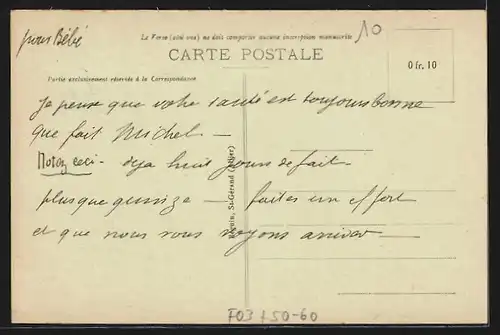 pour Bébé
Le Verso (côté vue) ne doit comporter aucune inscription manuscrite
10
CARTE POSTALE
0 fr. 10
Partie exclusivement réservée à la Correspondance
Je pense que votre santé est toujours bonne
que fait Michel —
Notez ceci - déjà huit jours de fait -
plus que quinze — faites un effort
et que nous vous voyons arriver —
St-Gérand (Allier)
F03 + 50-60